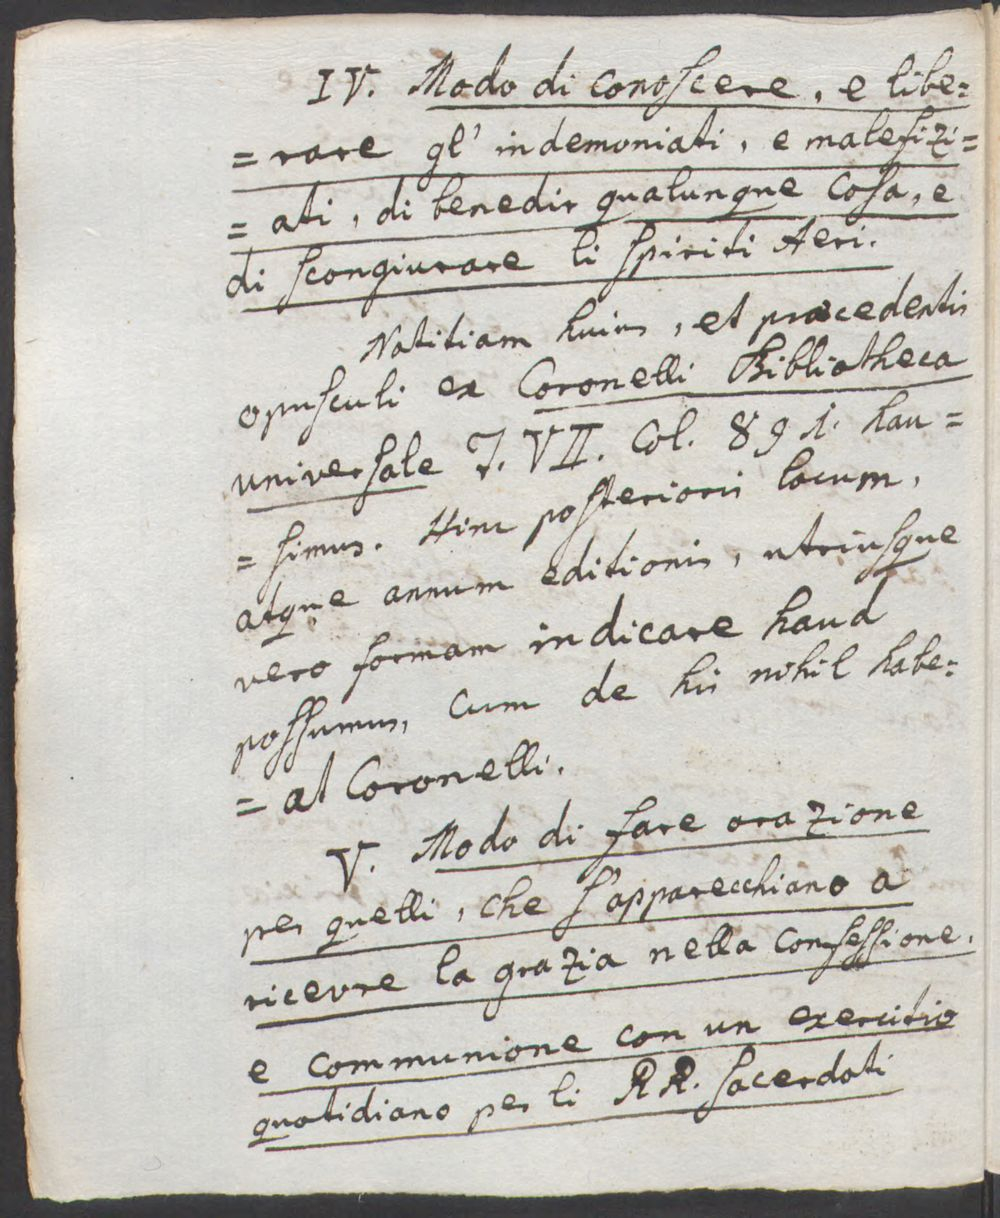 IV. Modo di conoscere, e libe=
=rare gl' indemoniati, e malefizi=
=ati, di benedir qualunque cosa, e
di scongiurare li spiriti Aeri.
Notitiam huius, et praecedentis
opusculi ex Coronelli Bibliotheca
universale T. VII. Col. 891. hau=
=simus. Hinc posterioris locum,
atque annum editionis, utriusque
vero formam indicare haud
possumus, cum de his nihil habe=
=at Coronelli.
V. Modo di fare orazione
per quelli, che s'apparecchiano a
ricevre la grazia nella confessione,
e communione con un exercitio
quotidiano per li RR. sacerdoti